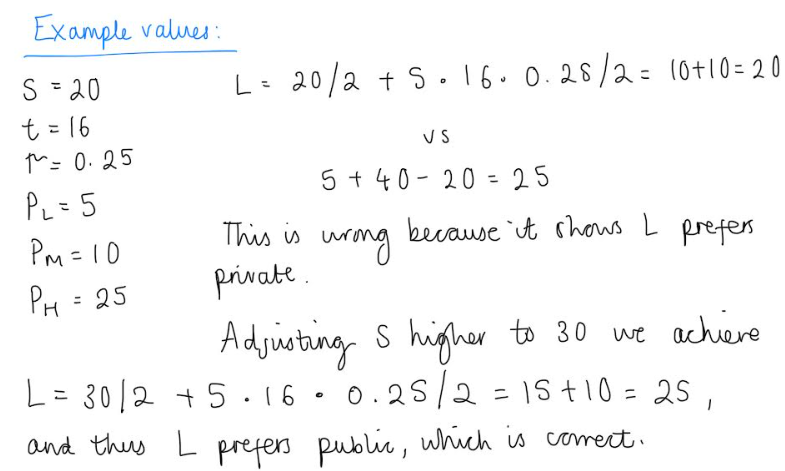 Example values:
S = 20
t = 16
r = 0.25
P_L = 5
P_M = 10
P_H = 25
L = 20/2 + 5 · 16 · 0.25/2 = 10+10 = 20
vs
5 + 40 - 20 = 25
This is wrong because it shows L prefers
private.
Adjusting S higher to 30 we achieve
L = 30/2 + 5 · 16 · 0.25/2 = 15+10 = 25,
and thus L prefers public, which is correct.